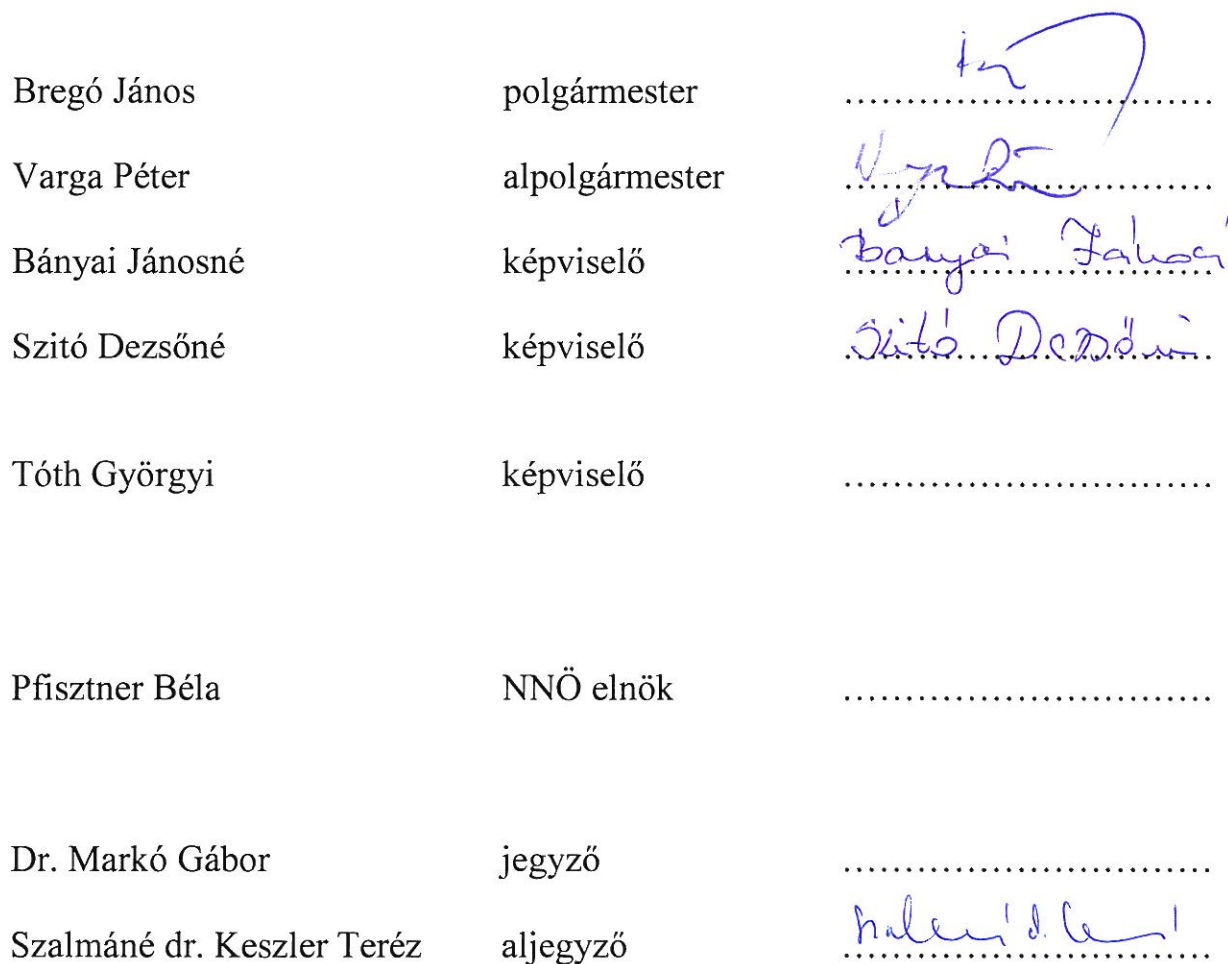 Bregó János polgármester ..............................
Varga Péter alpolgármester ..............................
Bányai Jánosné képviselő .............................. Bányai
Szitó Dezsőné képviselő .............................. Szitó Dezsőné
Tóth Györgyi képviselő ..............................
Pfisztner Béla NNÖ elnök ..............................
Dr. Markó Gábor jegyző ..............................
Szalmáné dr. Keszler Teréz aljegyző ..............................